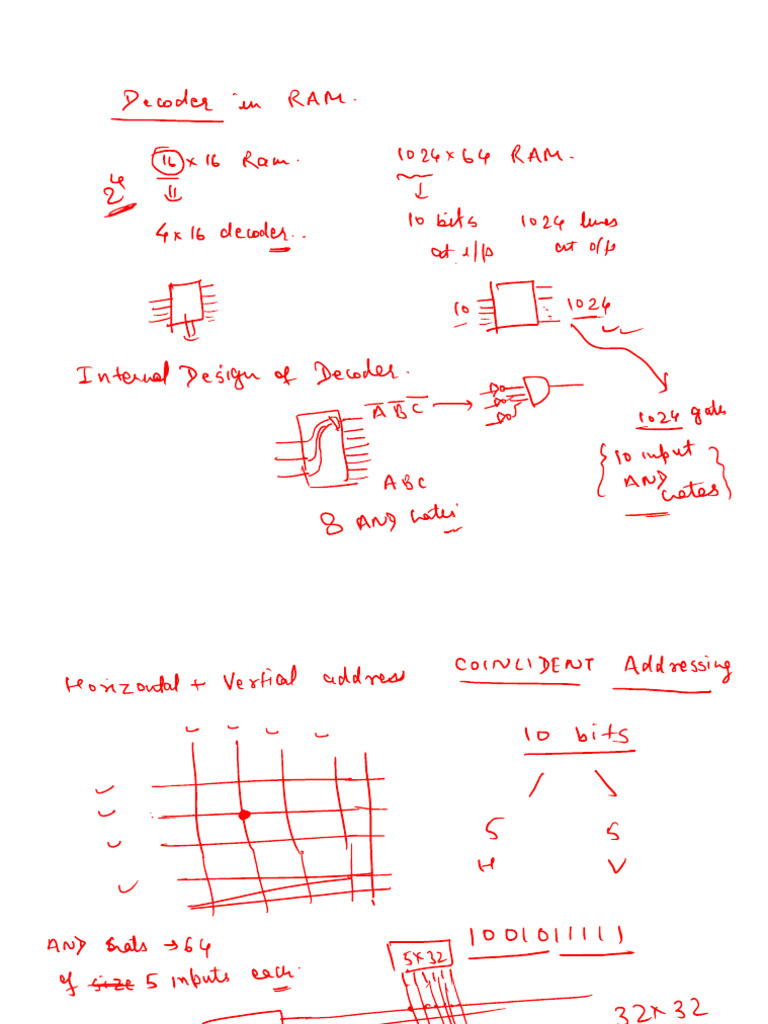 Decoder in RAM.
16 × 16 Ram.
2⁴
4 × 16 decoder..
1024 × 64 RAM.
10 bits
at i/p
1024 lines
at o/p
10
1024
Internal Design of Decoder.
A̅ B̅ C̅
ABC
8 AND Gates
1024 gates
10 input
AND
Gates
Horizontal + Vertical address
COINCIDENT Addressing
10 bits
5 5
H V
AND Gates → 64
of size 5 inputs each.
5 × 32
1001011111
32 × 32